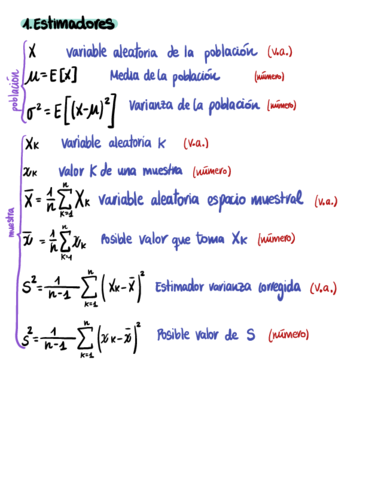 1. Estimadores
población
X variable aleatoria de la población (v.a.)
μ = E[X] Media de la población (número)
σ² = E[(X-μ)²] Varianza de la población (número)
muestra
Xₖ variable aleatoria K (v.a.)
xₖ valor K de una muestra (número)
X̄ = 1/n ∑ₖ₌₁ⁿ Xₖ variable aleatoria espacio muestral (v.a.)
x̄ = 1/n ∑ₖ₌₁ⁿ xₖ Posible valor que toma Xₖ (número)
S² = 1/(n-1) ∑ₖ₌₁ⁿ (Xₖ - X̄)² Estimador varianza corregida (v.a.)
s² = 1/(n-1) ∑ₖ₌₁ⁿ (xₖ - x̄)² Posible valor de S (número)